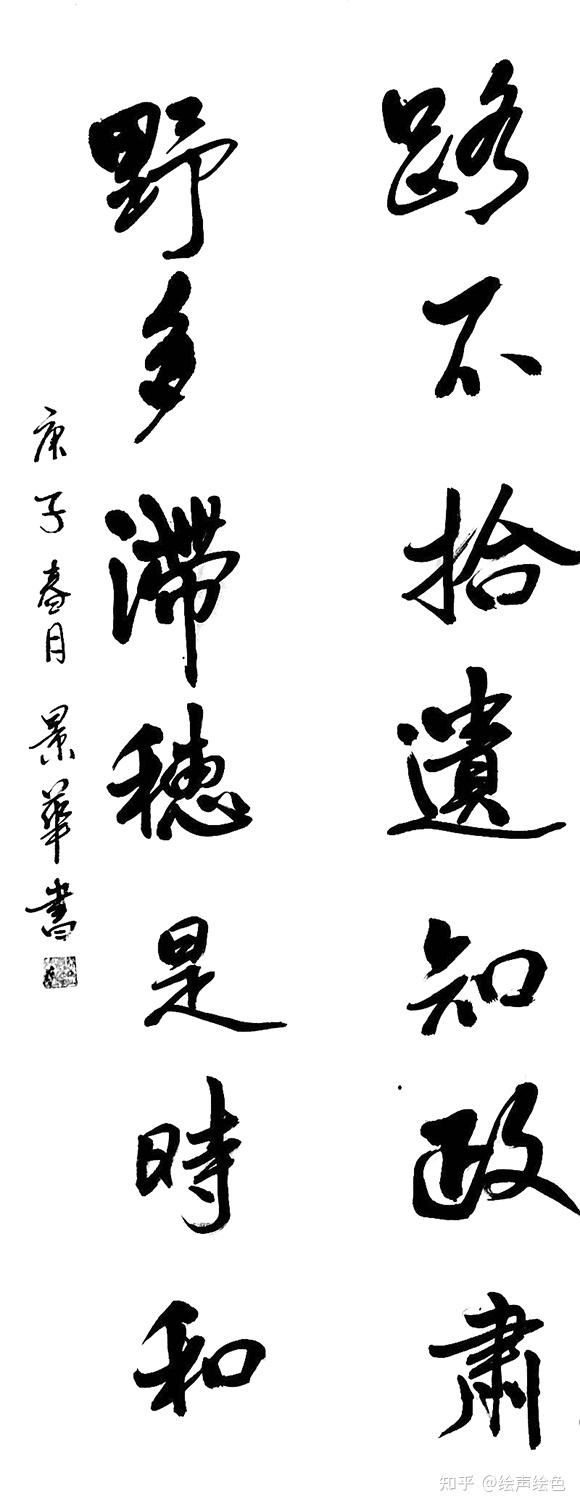 路不拾遺知政肅
野多滯穗是時和
庚子春月景華書
知乎 @绘声绘色